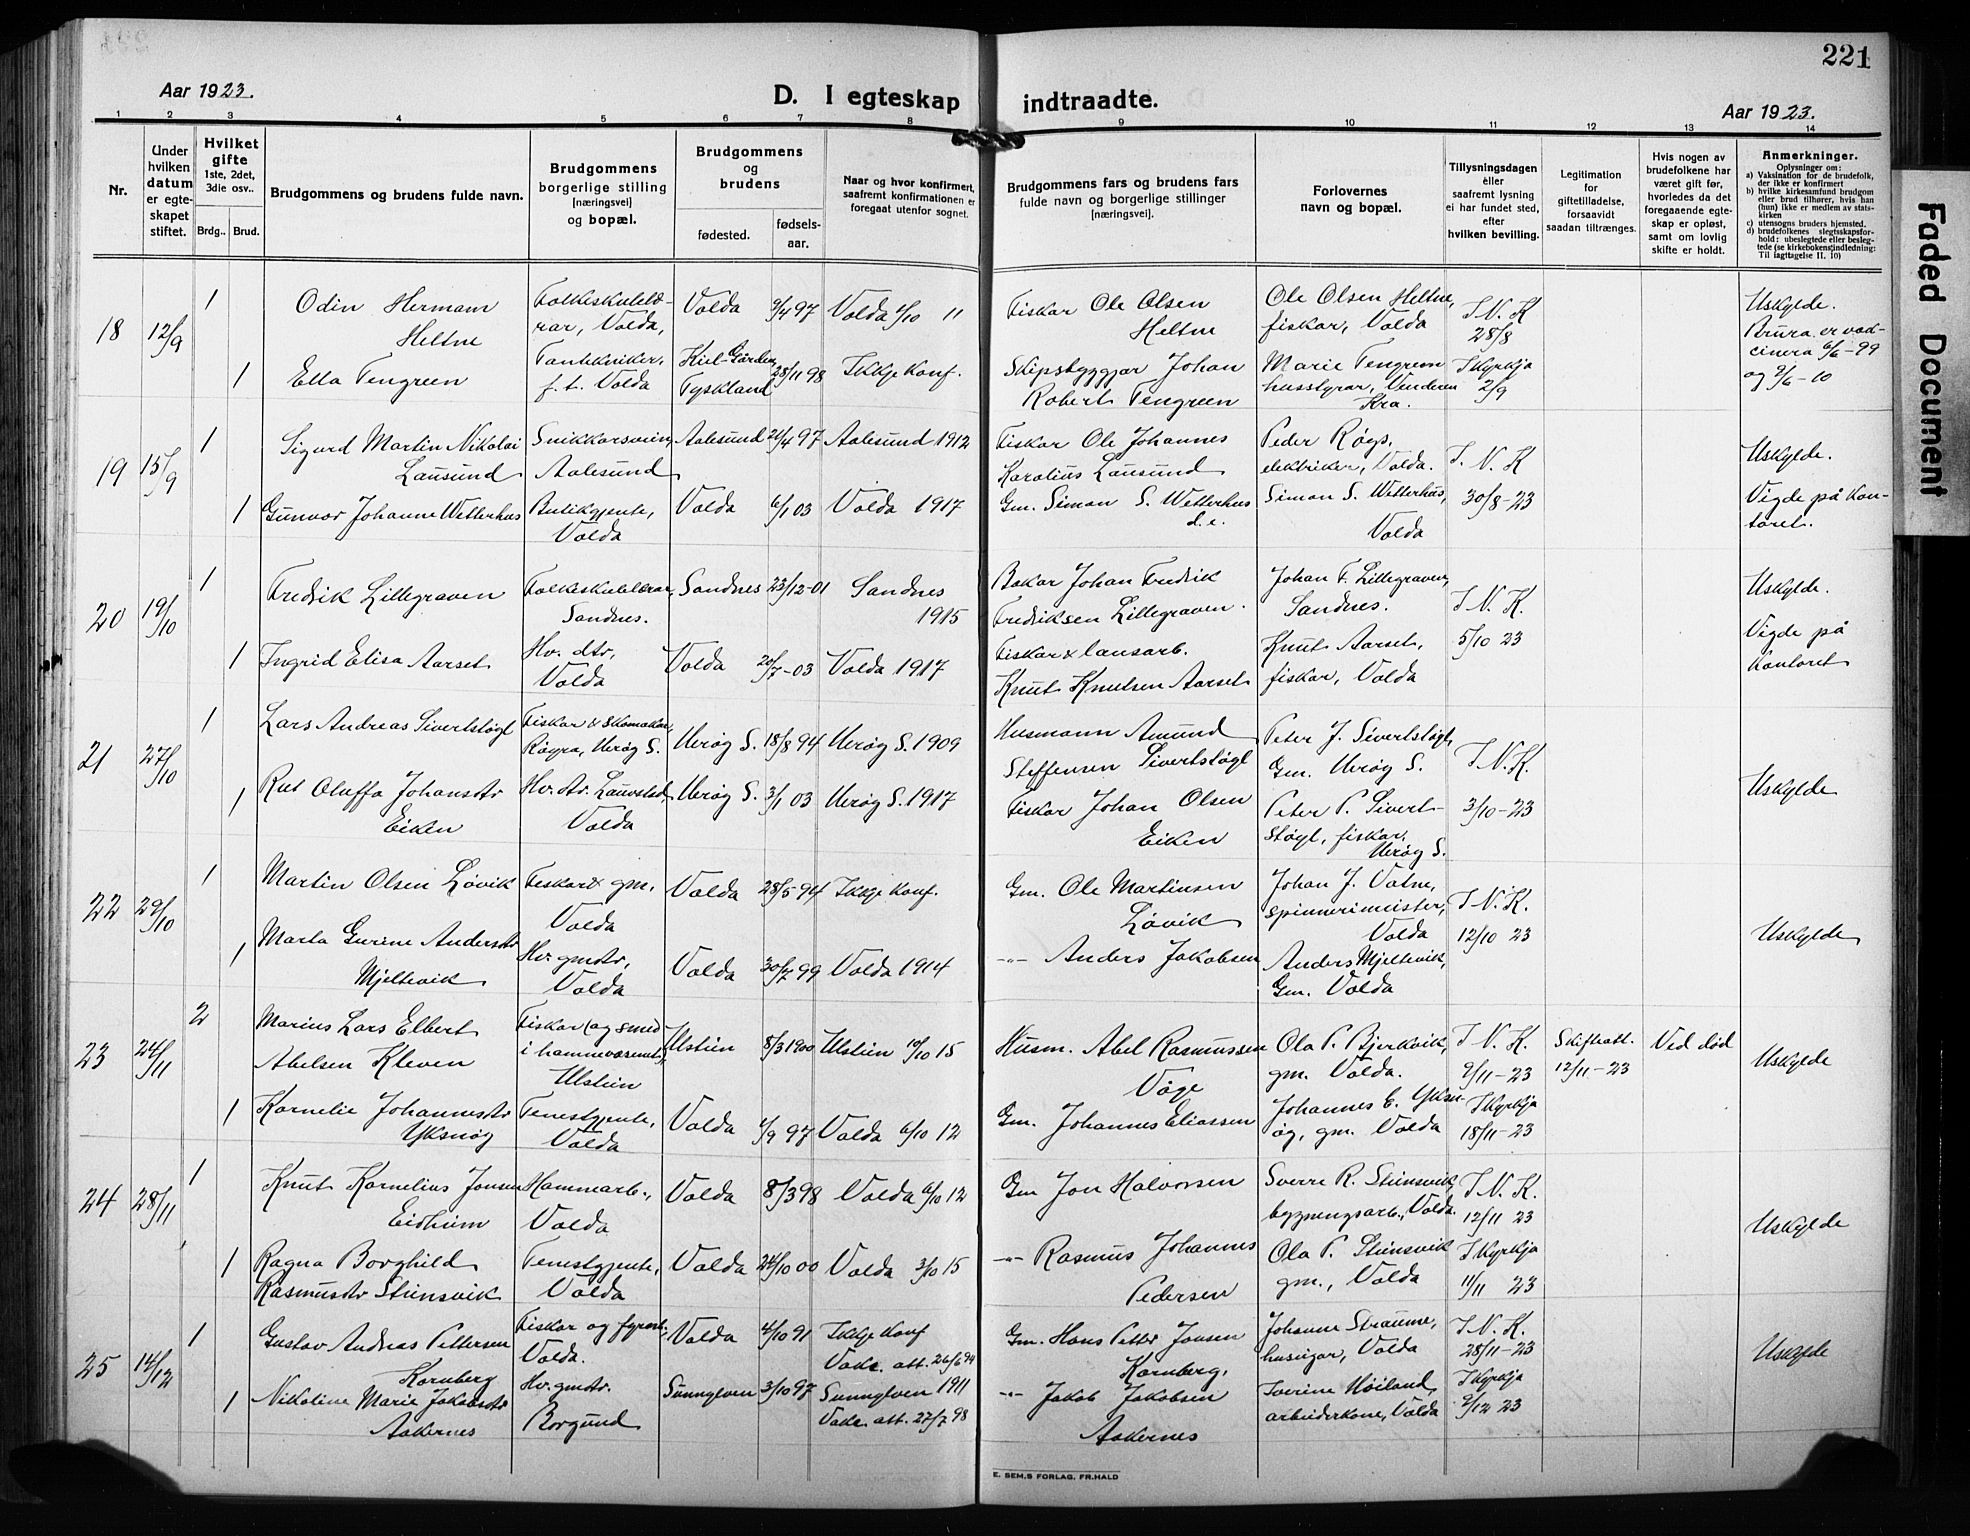 221
Aar 1923.
D. I egteskap indtraadte.
Aar 1923.
1 2 3 4 5 6 7 8 9 10 11 12 13 14
Nr.
Under hvilken datum er egte-skapet stiftet.
Hvilket gifte 1ste, 2det, 3die osv..
Brdg.. Brud.
Brudgommens og brudens fulde navn.
Brudgommens borgerlige stilling [næringsvei] og bopæl.
Brudgommens og brudens
fødested. fødsels-aar.
Naar og hvor konfirmert, saafremt konfirmationen er foregaat utenfor sognet.
Brudgommens fars og brudens fars fulde navn og borgerlige stillinger [næringsvei].
Forlovernes navn og bopæl.
Tillysningsdagen eller saafremt lysning ei har fundet sted, efter hvilken bevilling.
Legitimation for giftetilladelse, forsaavidt saadan tiltrænges.
Hvis nogen av brudefolkene har været gift før, hvorledes da det foregaaende egte-skap er opløst, samt om lovlig skifte er holdt.
Anmerkninger.
Oplysninger om:
a) Vaksination for de brudefolk, der ikke er konfirmert
b) hvilke kirkesamfund brudgom eller brud tilhører, hvis han (hun) ikke er medlem av stats-kirken
c) utensogns bruders hjemsted.
d) brudefolkenes slegtsskapsfor-hold: ubeslegtede eller besleg-tede (se kirkebokens indledning: Til Iagttagelse II. 10)
18 12/9 1 Odin Hermann Heltne Folkeskulelærar, Volda, Volda 9/4 97 Volda 1/10 11 Fiskar Ole Olsen Heltne Ole Olsen Heltne, fiskar, Volda I N. K 28/8 Uskylde. Brura er vaccinera 6/6-99 og 9/6-10
1 Ella Tengreen Tanntekniker, f. t. Volda Kiel-Gården Tyskland 28/11 98 Ikkje Konf. Skipsbyggjar Johan Robert Tengreen Marie Tengreen husstyrar, Vinderen Kra. I kyrkja 2/9
19 15/9 1 Sigurd Martin Nikolai Lausund Snikkarsvein, Aalesund Aalesund 24/4 97 Aalesund 1912 Fiskar Ole Johannes Karolius Lausund Peder Røgs, elektriker, Volda. I. N. K 30/8-23 Uskylde. Vigde på kontoret.
1 Gunvor Johanne Wetterhus Butikgjente, Volda Volda 6/1 03 Volda 1917 Gm. Simon S. Wetterhus d.e. Simon S. Wetterhus, Volda
20 19/10 1 Fredrik Lillegraven Folkeskulelærar, Sandnes. Sandnes 23/12-01 Sandnes 1915 Bakar Johan Fredrik Fredriksen Lillegraven. Johan F. Lillegraven, Sandnes. I N. K. 5/10 23 Uskylde. Vigde på kontoret
1 Ingrid Elisa Aarset Hv. dtr, Volda Volda 20/7-03 Volda 1917 Fiskar & lausarb. Knut Knutsen Aarset Knut Aarset, fiskar, Volda
21 27/10 1 Lars Andreas Sivertstøgl Fiskar & skomakar, Røyra, Herøy S. Herøy S. 18/8 94 Herøy S. 1909 Husmann Amund Steffensen Sivertstøgl Peter J. Sivertstøgl, Gm. Herøy S. I N. K. 3/10-23 Uskylde
1 Rut Oluffa Johansdtr Eiken Hv. dtr. Lauvstad, Volda Herøy S. 3/1 03 Herøy S. 1917 Fiskar Johan Olsen Eiken Peter P. Sivertstøgl, fiskar, Herøy S.
22 29/10 1 Martin Olsen Løvik Fiskar & gm. Volda Volda 28/5 94 Ikkje konf. Gm. Ole Martinsen Løvik Johan J. Vatne, spinnerimeister, Volda I N. K. 12/10 23 Uskylde
1 Marta Gurine Andersdtr Mjeltevik Hv. gmdtr, Volda Volda 30/7 99 Volda 1914 -"- Anders Jakobsen Anders Mjeltevik, Gm. Volda
23 24/11 2 Marius Lars Elbert Abelsen Kleven Fiskar (og smed i hamnevæsenet), Ulstein Ulstein 8/3 1900 Ulstein 10/10 15 Husm. Abel Rasmussen Våge Ola P. Bjerkvik, gm. Volda. I N. K. 9/11-23 Skifteatt. 12/11-23 Ved død Uskylde
1 Kornelie Johannesdtr Yksnøy Tenestgjente, Volda Volda 4/9 97 Volda 6/10 12 Gm. Johannes Eliassen Johannes E. Yksnøy, gm. Volda I kyrkja 18/11-23
24 28/11 1 Knut Kornelius Jonsen Eidheim Hamnearb., Volda Volda 8/3 98 Volda 6/10 12 Gm Jon Halvorsen Sverre R. Steinsvik, bygningsarb., Volda. I N. K. 12/11 23 Uskylde
1 Ragna Borghild Rasmusdtr Steinsvik Tenestgjente, Volda Volda 24/10 00 Volda 3/10 15 -"- Rasmus Johannes Pedersen Ola P. Steinsvik gm., Volda I kyrkja 11/11 23
25 14/12 1 Gustav Andreas Pettersen Kornberg Fiskar og fyrarb., Volda. Volda 4/10 91 Ikkje konf Vakc. att. 26/6 94 Gm. Hans Petter Jonsen Kornberg, Johanne Straume, huseigar, Volda I N. K. 28/11-23 Uskylde
1 Nikoline Marie Jakobsdtr Aakernes Hv. gmdtr. Borgund Sunnylven 3/10 97 Sunnylven 1911 Vakc. att. 27/7 98 -"- Jakob Jakobsen Aakernes Severine Høiland, arbeiderkone, Volda I kyrkja 9/12 23
E. SEM.S FORLAG. FR.HALD
Faded Document